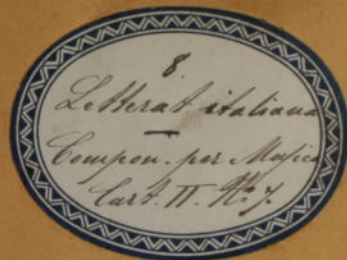 8.
Letterat italiana
Compon. per Musica
Cart. II. No 7.